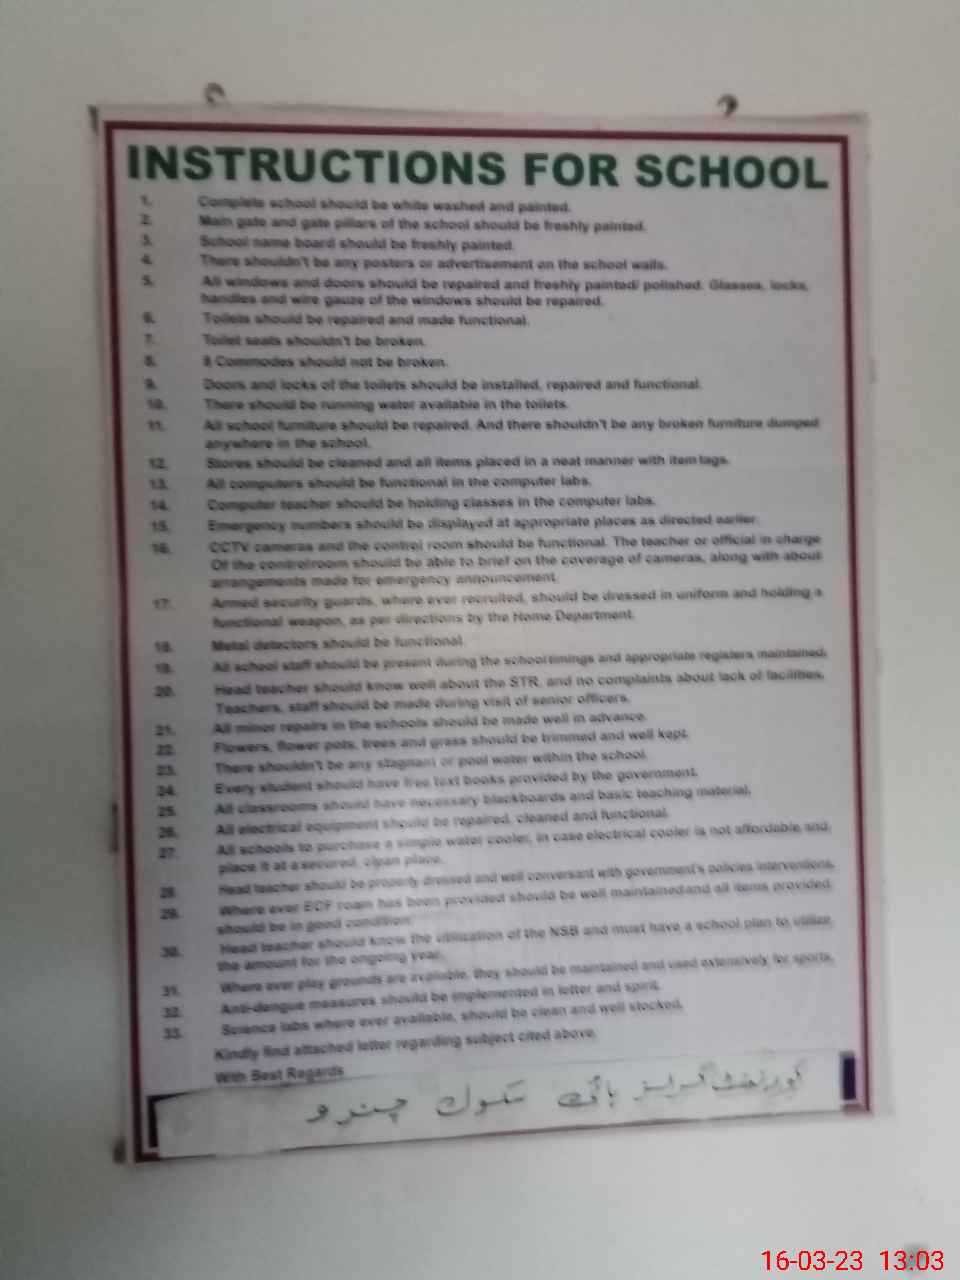 INSTRUCTIONS FOR SCHOOL
1. Complete school should be white washed and painted.
2. Main gate and gate pillars of the school should be freshly painted.
3. School name board should be freshly painted.
4. There shouldn't be any posters or advertisement on the school walls.
5. All windows and doors should be repaired and freshly painted/ polished. Glasses, locks,
handles and wire gauze of the windows should be repaired.
6. Toilets should be repaired and made functional.
7. Toilet seats shouldn't be broken.
8. 8 Commodes should not be broken.
9. Doors and locks of the toilets should be installed, repaired and functional.
10. There should be running water available in the toilets.
11. All school furniture should be repaired. And there shouldn't be any broken furniture dumped
anywhere in the school.
12. Stores should be cleaned and all items placed in a neat manner with item tags.
13. All computers should be functional in the computer labs.
14. Computer teacher should be holding classes in the computer labs.
15. Emergency numbers should be displayed at appropriate places as directed earlier.
16. CCTV cameras and the control room should be functional. The teacher or official in charge
Of the controlroom should be able to brief on the coverage of cameras, along with about
arrangements made for emergency announcement.
17. Armed security guards, where ever recruited, should be dressed in uniform and holding a
functional weapon, as per directions by the Home Department.
18. Metal detectors should be functional.
19. All school staff should be present during the school timings and appropriate registers maintained.
20. Head teacher should know well about the STR, and no complaints about lack of facilities,
Teachers, staff should be made during visit of senior officers.
21. All minor repairs in the schools should be made well in advance.
22. Flowers, flower pots, trees and grass should be trimmed and well kept.
23. There shouldn't be any stagnant or pool water within the school.
24. Every student should have free text books provided by the government.
25. All classrooms should have necessary blackboards and basic teaching material.
26. All electrical equipment should be repaired, cleaned and functional.
27. All schools to purchase a simple water cooler, in case electrical cooler is not affordable and,
place it at a secured, clean place.
28. Head teacher should be properly dressed and well conversant with government's policies interventions.
29. Where ever ECF room has been provided should be well maintained and all items provided
should be in good condition.
30. Head teacher should know the utilization of the NSB and must have a school plan to utilize
the amount for the ongoing year.
31. Where ever play grounds are available, they should be maintained and used extensively for sports.
32. Anti-dengue measures should be implemented in letter and spirit.
33. Science labs where ever available, should be clean and well stocked.
Kindly find attached letter regarding subject cited above.
With Best Regards
گورنمنٹ گرلز ہائی سکول چندرو
16-03-23 13:03